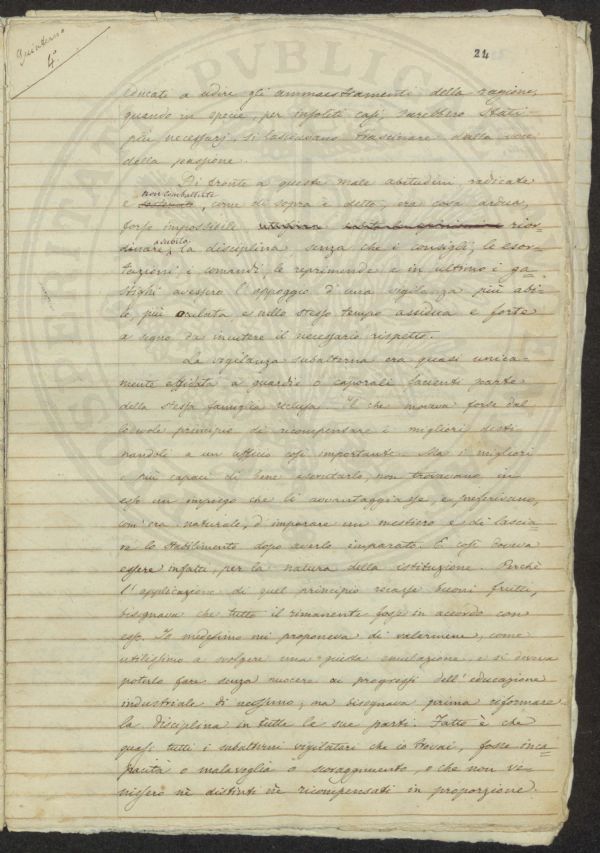 Quinterno
4°.
24
educati a udire gli ammaestramenti della ragione,
quando in specie, per insoliti casi, sarebbero stati
più necessarj, si lasciavano trascinare dalla
della passione.
Di fronte a queste male abitudini, radicate
non combattute
e, come di sopra è detto, era cosa ardua,
forse impossibile rior-
subito
dinare, la disciplina senza che i consigli, le esor-
tazioni i comandi, le reprimende e in ultimo i ga-
stighi avessero l'appoggio di una vigilanza più abi-
le più oculata e nello stesso tempo assidua e forte
a segno da incutere il necessario rispetto.
La vigilanza subalterna era quasi unica-
mente affidata a guardie o caporali facienti parte
della stessa famiglia reclusa. Il che moveva forse dal
lodevole principio di ricompensare i migliori desti-
nandoli a un ufficio così importante. Ma i migliori
e più capaci di bene esercitarlo, non trovavano in
esso un impiego che li avvantaggiasse, e preferivano,
com'era naturale, d'imparare un mestiero e di lascia-
re lo stabilimento dopo averlo imparato. E così doveva
essere infatti, per la natura della istituzione. Perchè
l'applicazione di quel principio recasse buoni frutti,
bisognava che tutto il rimanente fosse in accordo con
esso. Io medesimo mi proponeva di valermene, come
utilissimo a svolgere una giusta emulazione, e si doveva
poterlo fare senza nuocere ai progressi dell'educazione
industriale di nessuno; ma bisognava prima riformare
la disciplina in tutte le sue parti. Fatto è che
quasi tutti i subalterni vigilatori che io trovai, fosse inca-
pacità o malavoglia o scoraggimento, o che non ve-
nissero nè distinti nè ricompensati in proporzione